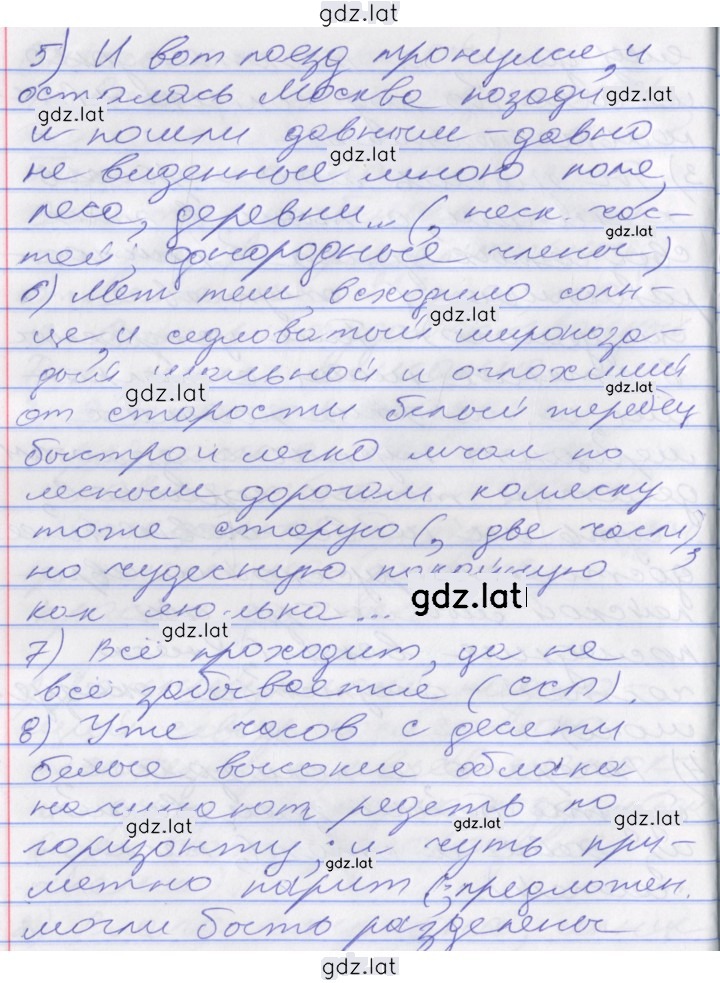 gdz.lat
5) И вот поезд тронулся, и
осталась Москва позади,
gdz.lat gdz.lat
и пошли давным-давно
gdz.lat
не виденные мною поле,
леса, деревни... (, неск. час-
gdz.lat
тей, однородные члены)
6) Меж тем, всходило солн-
gdz.lat
це, и седловатый широкоза-
дый и сильной и оглохший
gdz.lat gdz.lat
от старости белый жеребец
быстро и легко мчал по
лесным дорогам коляску
тоже старую (, две части),
но чудесную покойную
gdz.lat
как люлька...
gdz.lat
7) Всё проходит, да не
всё забывается (ССП).
8) Уже часов с десяти
белые высокие облака
начинают редеть по
gdz.lat gdz.lat
горизонту; и чуть при-
gdz.lat
метно парит (; предложен.
могли быть разделены
gdz.lat